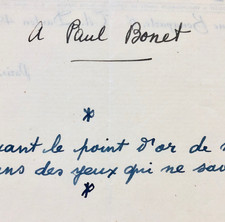 A Paul Bonet
*
uant le point d'or de
ens des yeux qui ne sav
*